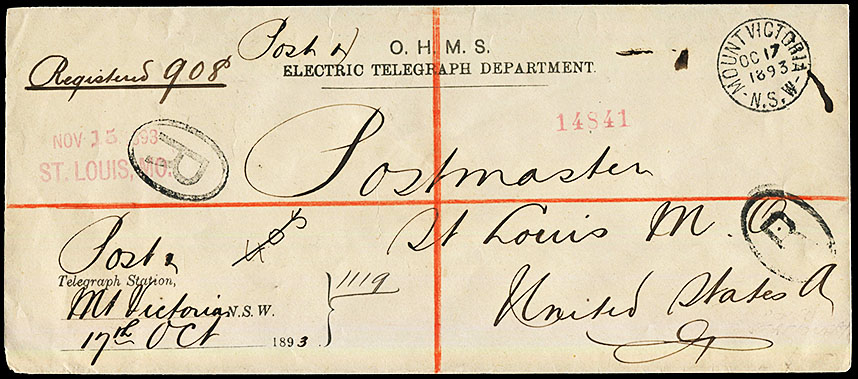 Post &
O. H. M. S.
ELECTRIC TELEGRAPH DEPARTMENT.
Registered 908
MOUNT VICTORIA
OC 17
1893
N.S.W
14841
NOV 15 1893
ST. LOUIS, MO.
R
Postmaster
St Louis M.O
R
United States A
Post &
Telegraph Station,
Mt Victoria N.S.W.
17th Oct 1893.
1119